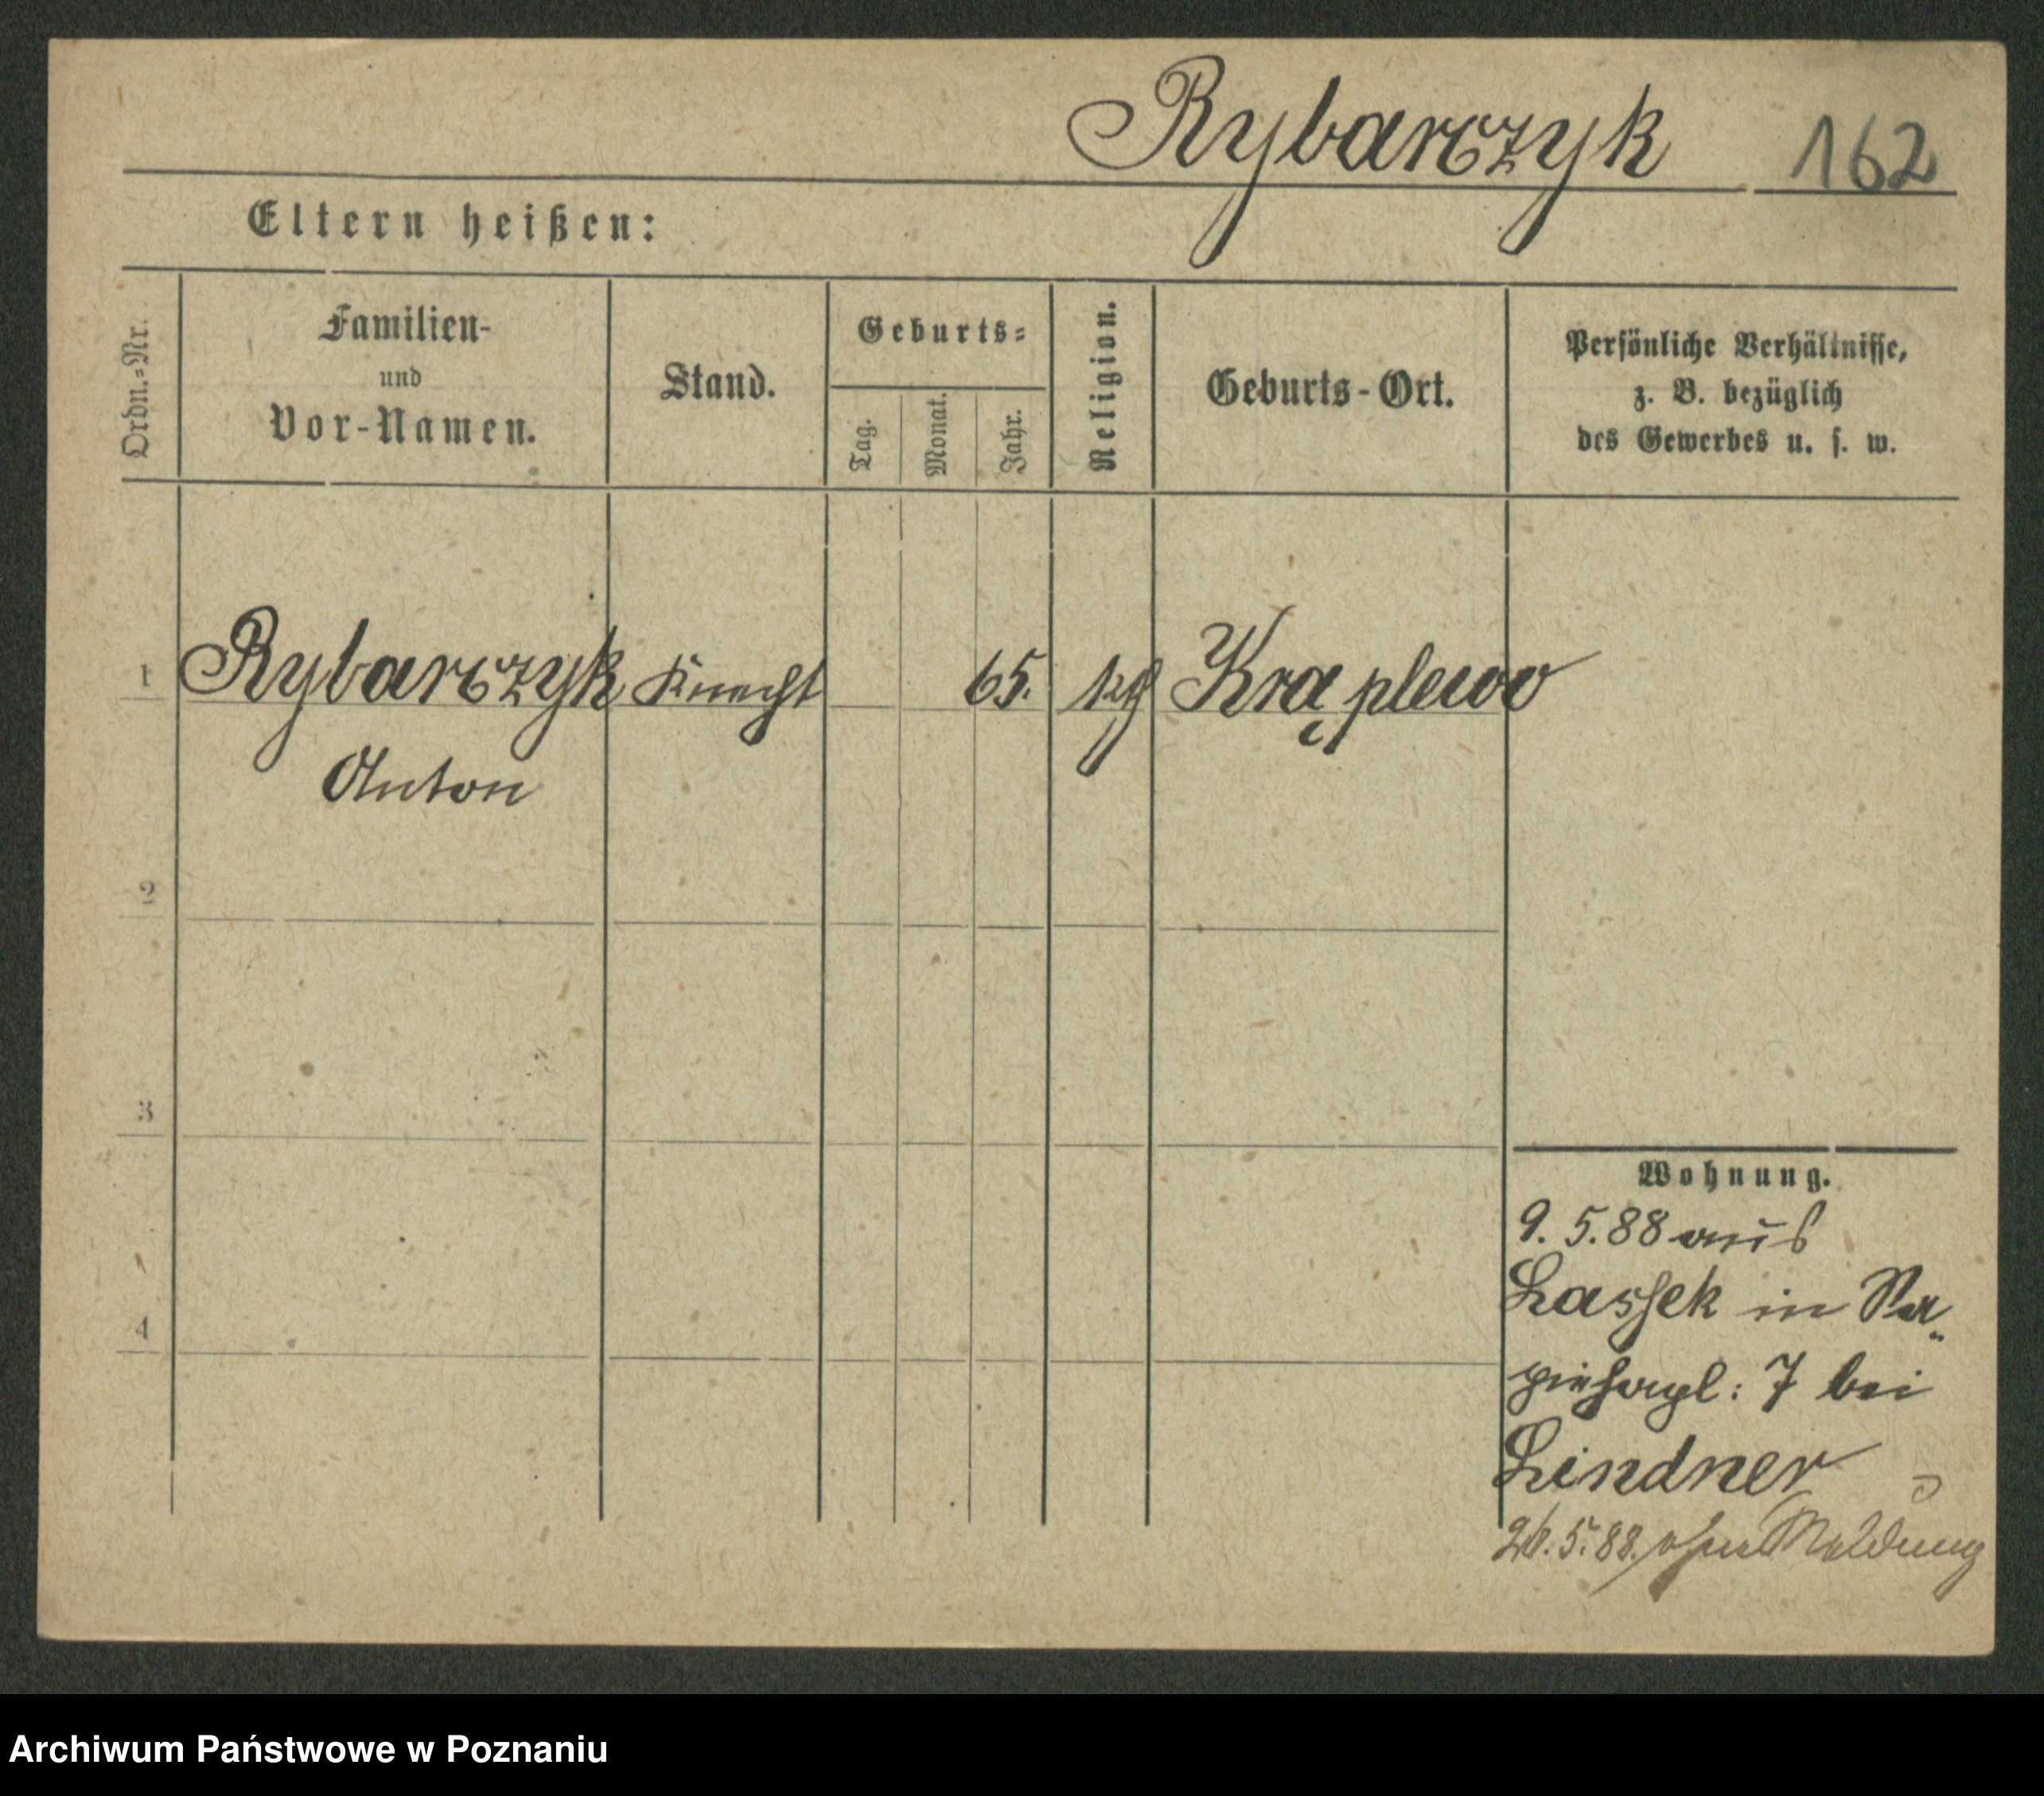 Rybarczyk 162
Eltern heißen:
Ordn.-Nr.
Familien-
und
Vor-Namen.
Stand.
Geburts-
Tag.
Monat.
Jahr.
Religion.
Geburts-Ort.
Persönliche Verhältnisse,
z. B. bezüglich
des Gewerbes u. s. w.
1 Rybarczyk Knecht 65. kth Krąplewo
Anton
2
3
4
Wohnung.
9. 5. 88 aus
Lassek in Sa-
piehapl: 7 bei
Lindner
26. 5. 88. ohne Meldung
Archiwum Państwowe w Poznaniu